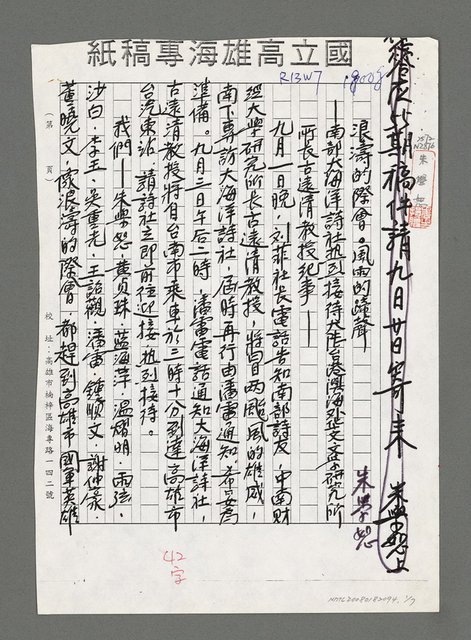 國立高雄海專專稿紙
R13W7
1808
1512
N2876
朱學恕
期稿件請九日廿日寄來
朱學恕上
浪濤的際會。風雨的蹄聲
朱學恕
──南部大海洋詩社熱烈接待大陸台港澳海外華文文學研究所
所長古遠清教授紀事──
九月一日晚,刘菲社長電話告知南部詩友,中南財
經大學研究所長古遠清教授,將冒两颱風的雄威,
南下專訪大海洋詩社,屆時再行由潘雷通知,希妥為
準備。九月三日午后一時,潘雷電話通知大海洋詩社,
古遠清教授將自台南市乘車於三時十分到達高雄市
台汽東站,請詩社立即前往迎接,熱烈接待。
我們──朱學恕.黄貝珠.藍海萍.温熠明.雨弦.
沙白.李玉.吳重光.王詔觀.潘雷.鍾順文.謝仲豪.
董曉文,像浪濤的際會,都趕到高雄市國軍英雄
(第 頁)
校址:高雄市楠梓區海專路一四二號
42
字
NMTL20080182094. 1/7